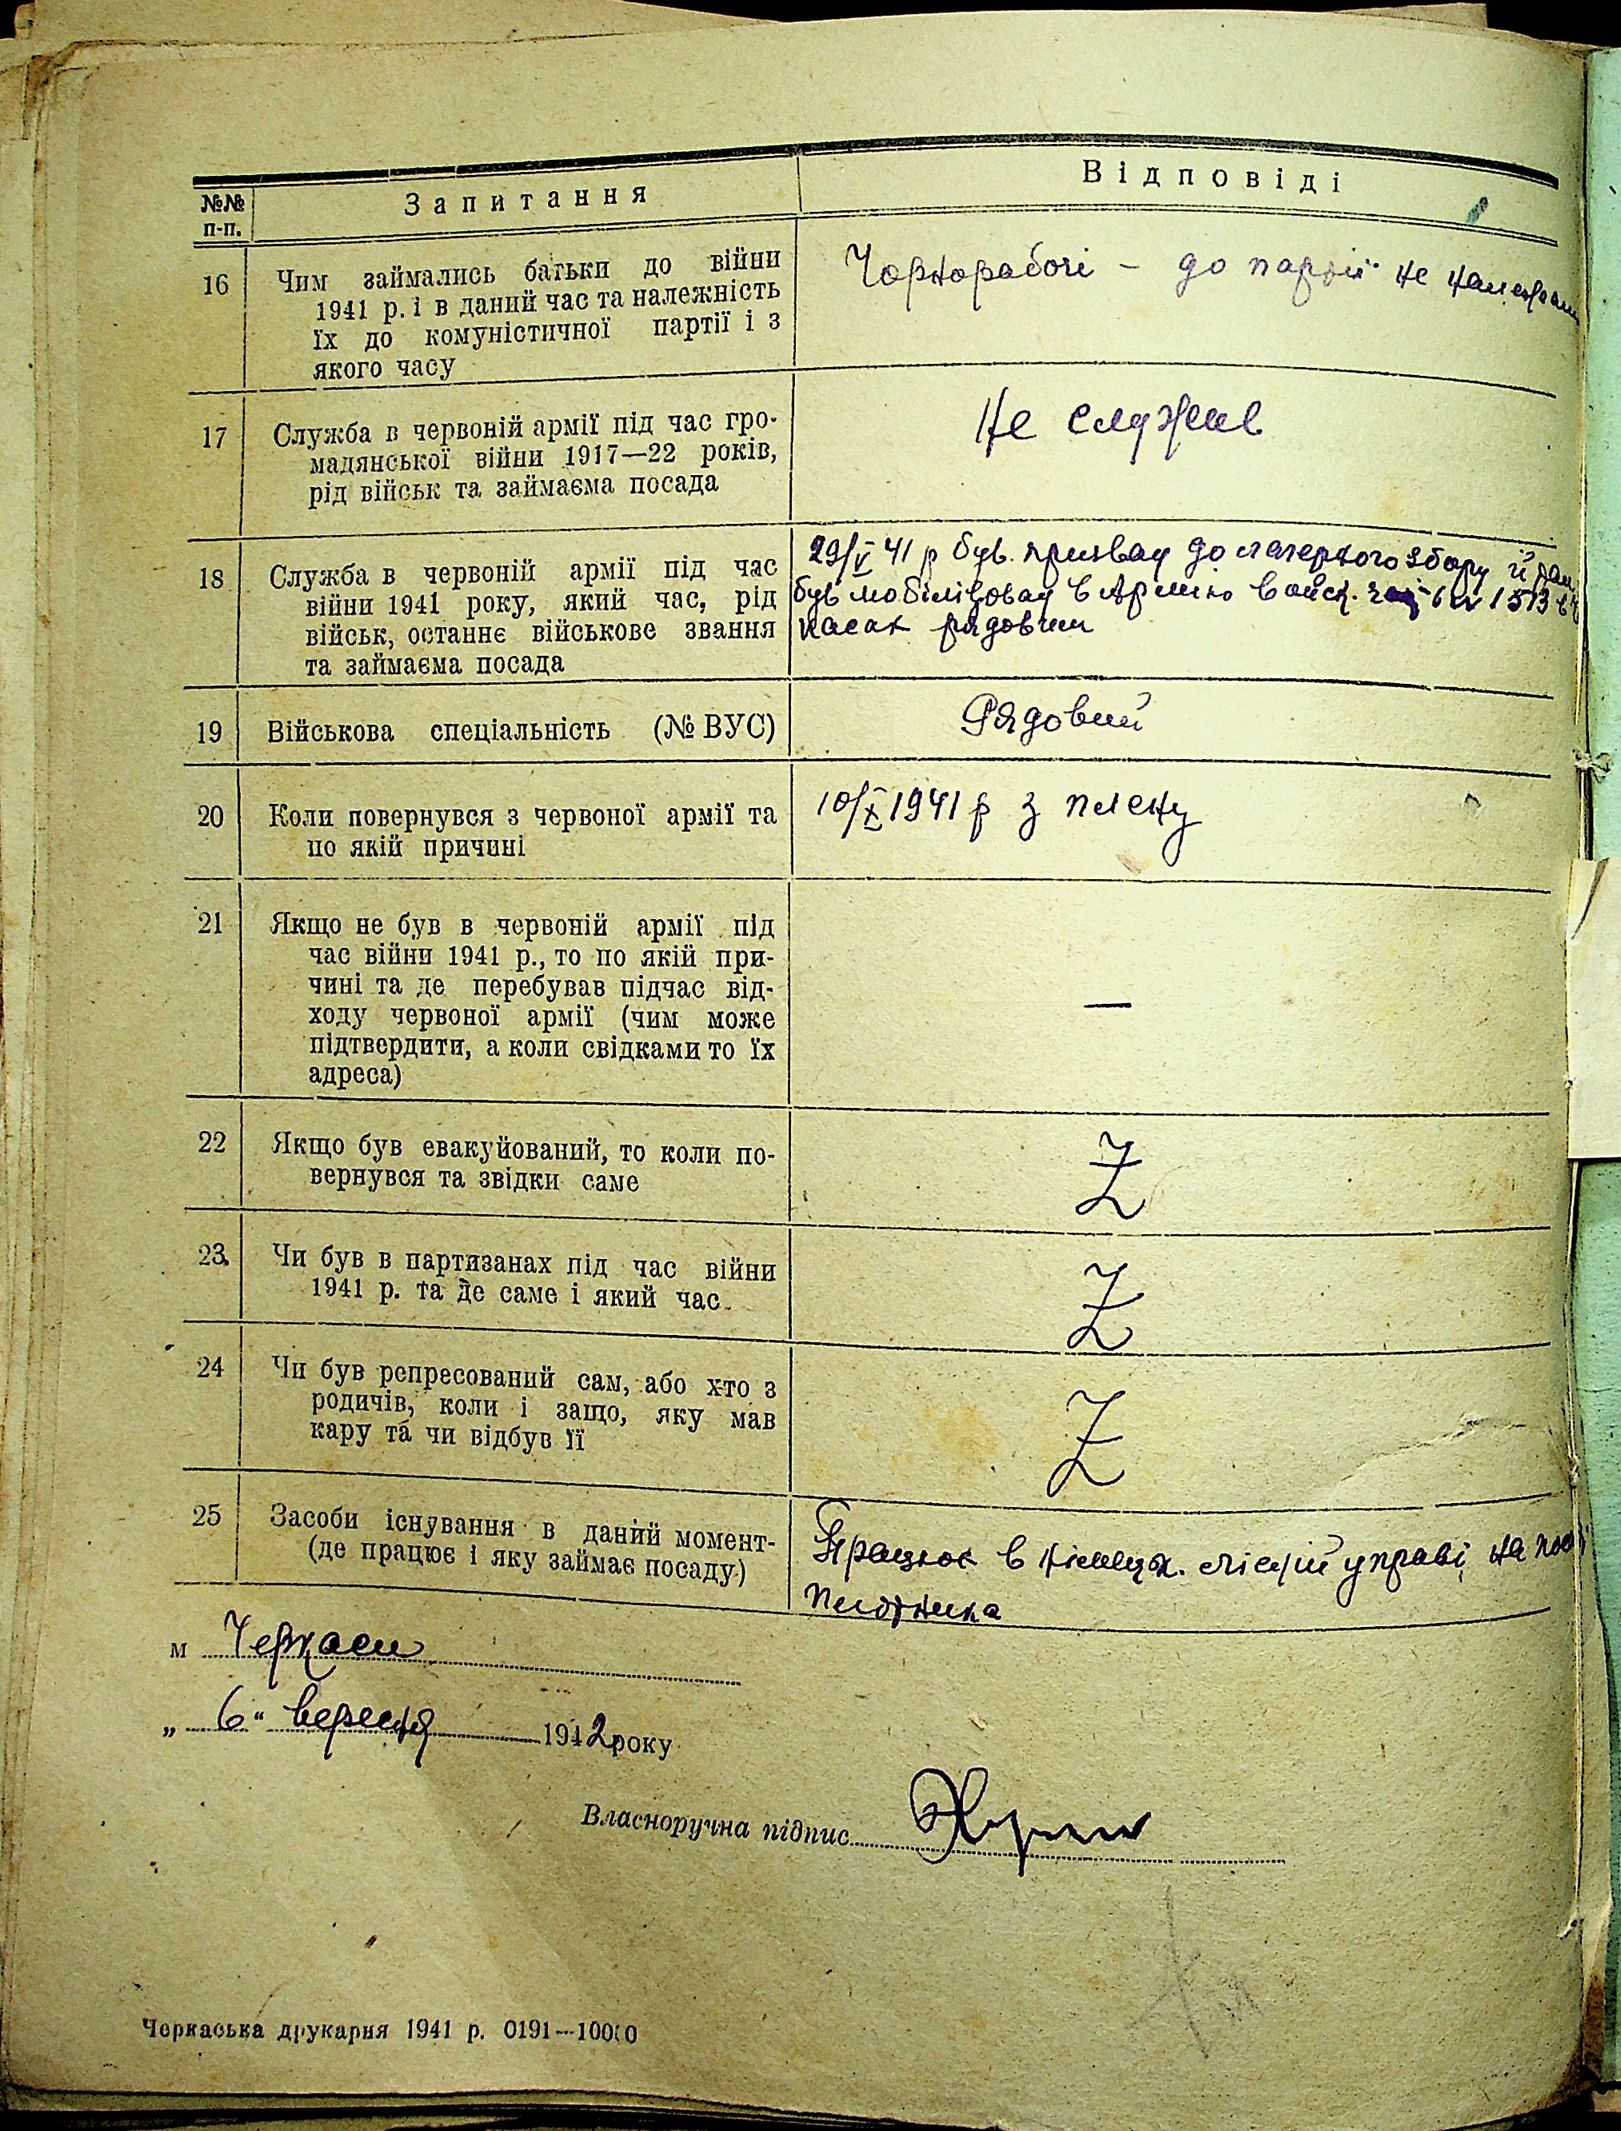 №№ п-п.
Запитання
Відповіді
16
Чим займались батьки до війни
1941 р. і в даний час та належність
їх до комуністичної партії і з
якого часу
Чорнорабочі – до партії не належали
17
Служба в червоній армії під час гро-
мадянської війни 1917—22 років,
рід військ та займаєма посада
Не служив
18
Служба в червоній армії під час
війни 1941 року, який час, рід
військ, останнє військове звання
та займаєма посада
29/V 41 р був призван до лагерного збору й
був мобілізован в Армію войск. 1513
касах рядовим
19
Військова спеціальність (№ ВУС)
Рядовий
20
Коли повернувся з червоної армії та
по якій причині
10/X 1941 р з плену
21
Якщо не був в червоній армії під
час війни 1941 р., то по якій при-
чині та де перебував підчас від-
ходу червоної армії (чим може
підтвердити, а коли свідками то їх
адреса)
—
22
Якщо був евакуйований, то коли по-
вернувся та звідки саме
Z
23.
Чи був в партизанах під час війни
1941 р. та де саме і який час.
Z
24
Чи був репресований сам, або хто з
родичів, коли і защо, яку мав
кару та чи відбув її
Z
25
Засоби існування в даний момент-
(де працює і яку займає посаду)
Працює в німецк. міській управі на
плотника
м Черкаси
„ 6 " вересня 1942 року
Власноручна підпис
Черкаська друкарня 1941 р. 0191—10000